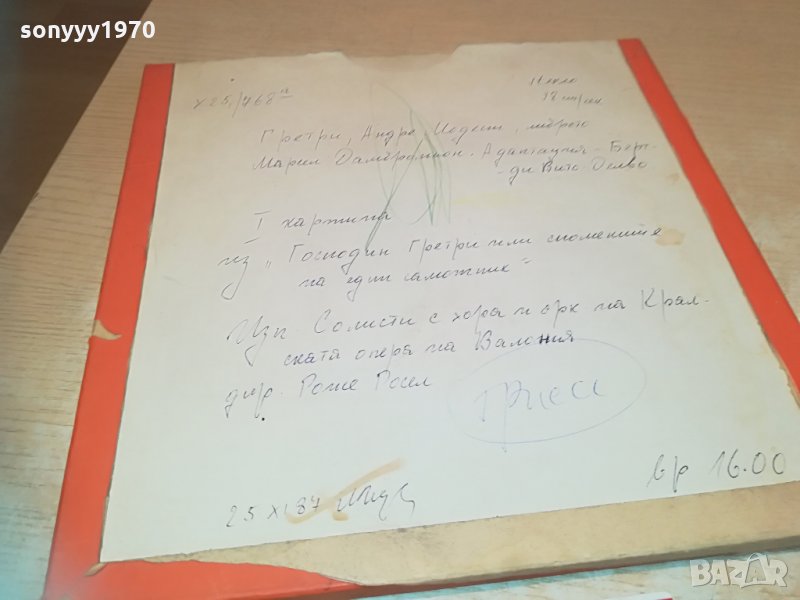 sonyyy1970
x25/468
Гретри, Андре Модест, либрето
Марил Дамбрамион. Адаптация - Бер-
ди Витс Делво
I картина
из „Господин Гретри или спомените
на един
Изп. Солисти с хора и орк на Крал-
ската опера на Валония
дир. Роже Росел
25 XI 87
вр 16.00
BAZAR